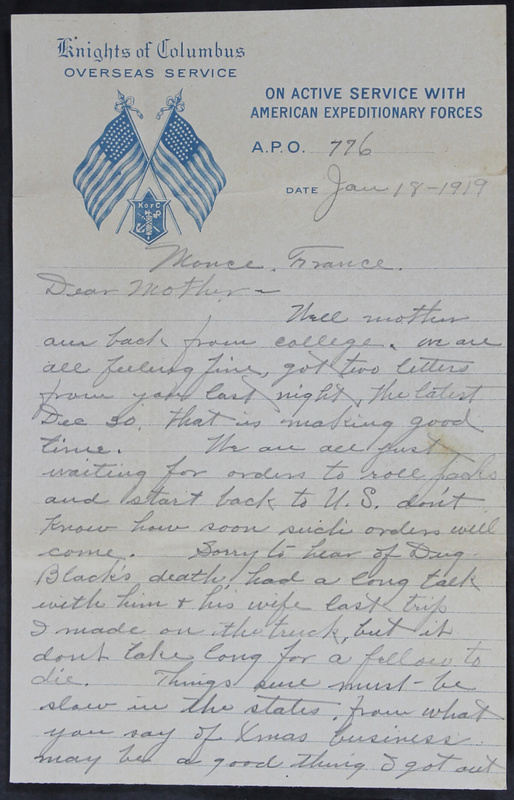 Knights of Columbus
OVERSEAS SERVICE
ON ACTIVE SERVICE WITH
AMERICAN EXPEDITIONARY FORCES
A.P.O. 776
DATE Jan 18-1919
K of C
France.
Dear Mother -
Well mother
am back from college. we are
all feeling fine, got two letters
from you last night, the latest
Dec 30. that is making good
time. We are all just
waiting for orders to roll packs
and start back to U.S. don't
know how soon such orders will
come. Sorry to hear of Dug.
Black's death, had a long talk
with him & his wife last trip
I made on the truck, but it
dont take long for a fellow to
die. Things sure must be
slow in the states, from what
you say of Xmas business
may be a good thing I got out